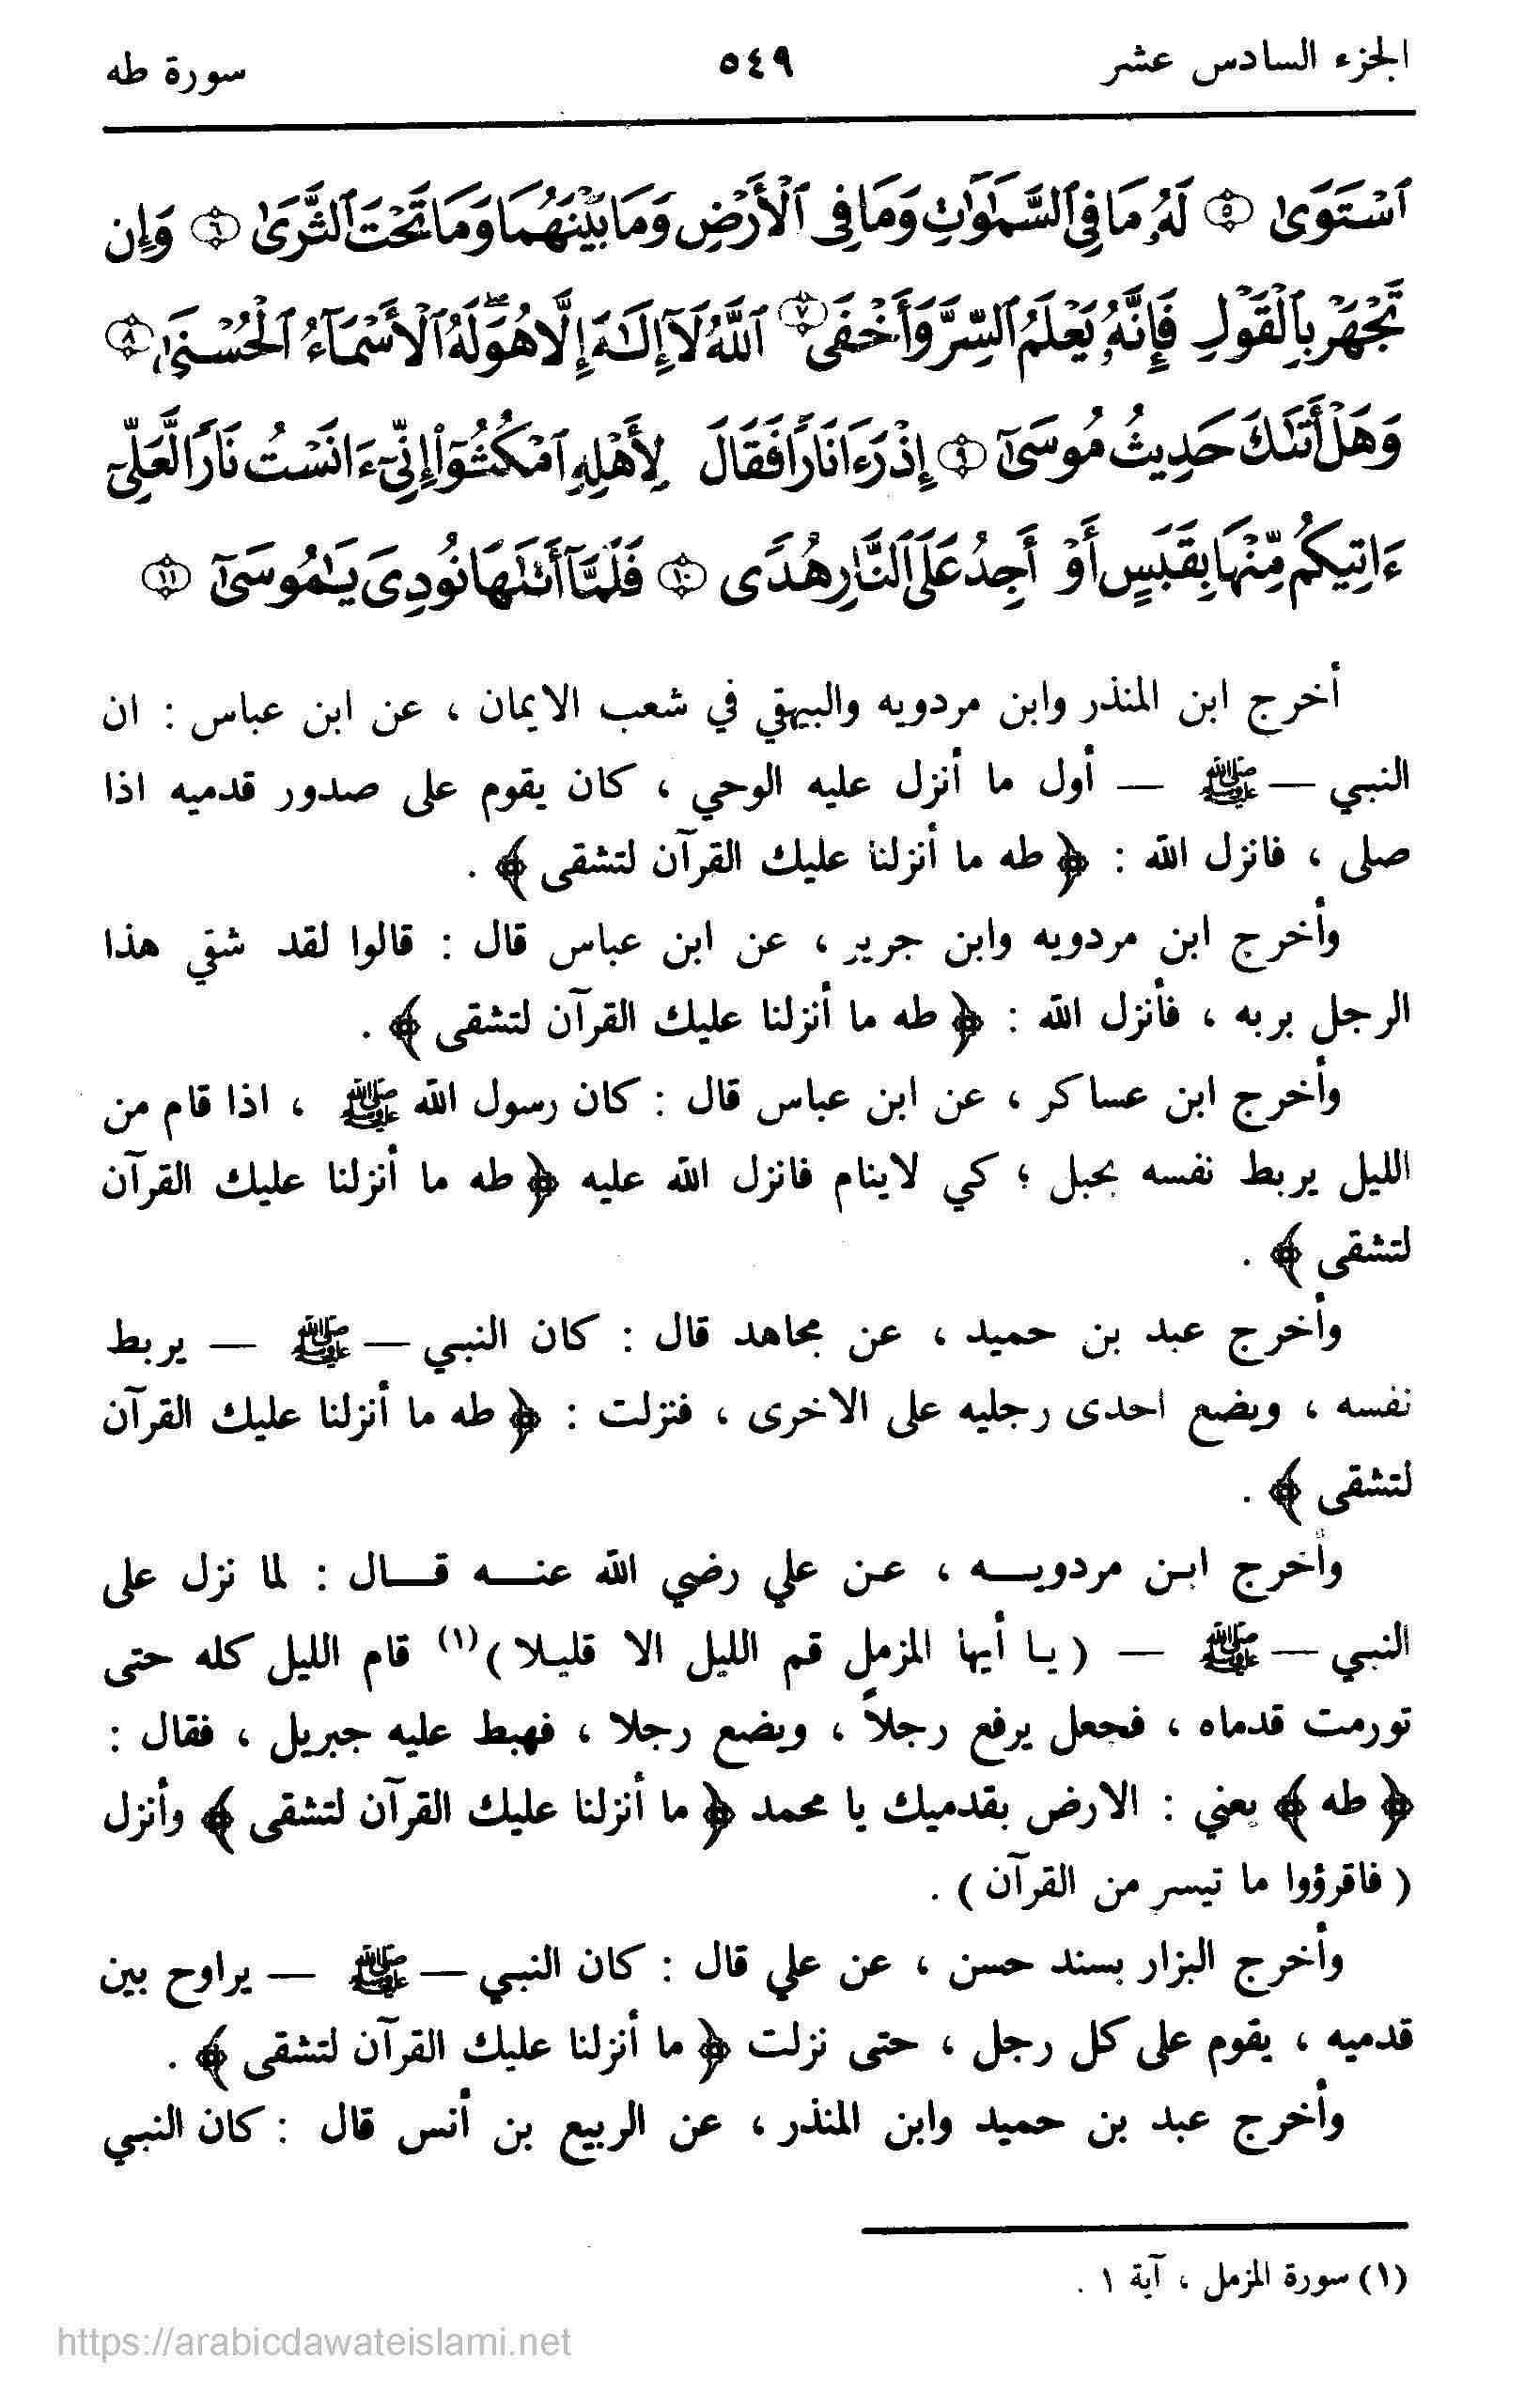 الجزء السادس عشر ٥٤٩ سورة طه
ٱسْتَوَىٰ ۝٥ لَهُۥ مَا فِي ٱلسَّمَٰوَٰتِ وَمَا فِي ٱلْأَرْضِ وَمَا بَيْنَهُمَا وَمَا تَحْتَ ٱلثَّرَىٰ ۝٦ وَإِن
تَجْهَرْ بِٱلْقَوْلِ فَإِنَّهُۥ يَعْلَمُ ٱلسِّرَّ وَأَخْفَى ۝٧ ٱللَّهُ لَآ إِلَٰهَ إِلَّا هُوَۖ لَهُ ٱلْأَسْمَآءُ ٱلْحُسْنَىٰ ۝٨
وَهَلْ أَتَىٰكَ حَدِيثُ مُوسَىٰٓ ۝٩ إِذْ رَءَا نَارًا فَقَالَ لِأَهْلِهِ ٱمْكُثُوٓا۟ إِنِّيٓ ءَانَسْتُ نَارًا لَّعَلِّيٓ
ءَاتِيكُم مِّنْهَا بِقَبَسٍ أَوْ أَجِدُ عَلَى ٱلنَّارِ هُدًى ۝١٠ فَلَمَّآ أَتَىٰهَا نُودِيَ يَٰمُوسَىٰٓ ۝١١
أخرج ابن المنذر وابن مردويه والبيهقي في شعب الايمان ، عن ابن عباس : ان
النبي — ﷺ — أول ما أنزل عليه الوحي ، كان يقوم على صدور قدميه اذا
صلى ، فانزل الله : ﴿ طه ما أنزلنا عليك القرآن لتشقى ﴾ .
وأخرج ابن مردويه وابن جرير ، عن ابن عباس قال : قالوا لقد شقي هذا
الرجل بربه ، فأنزل الله : ﴿ طه ما أنزلنا عليك القرآن لتشقى ﴾ .
وأخرج ابن عساكر ، عن ابن عباس قال : كان رسول الله ﷺ ، اذا قام من
الليل يربط نفسه بحبل ؛ كي لاينام فانزل الله عليه ﴿ طه ما أنزلنا عليك القرآن
لتشقى ﴾ .
وأخرج عبد بن حميد ، عن مجاهد قال : كان النبي — ﷺ — يربط
نفسه ، ويضع احدى رجليه على الاخرى ، فنزلت : ﴿ طه ما أنزلنا عليك القرآن
لتشقى ﴾ .
وأخرج ابن مردويـــه ، عن علي رضي الله عنـــه قـــال : لما نزل على
النبي — ﷺ — ( يا أيها المزمل قم الليل الا قليلا )(١) قام الليل كله حتى
تورمت قدماه ، فجعل يرفع رجلاً ، ويضع رجلا ، فهبط عليه جبريل ، فقال :
﴿ طه ﴾ يعني : الارض بقدميك يا محمد ﴿ ما أنزلنا عليك القرآن لتشقى ﴾ وأنزل
( فاقرؤوا ما تيسر من القرآن ) .
وأخرج البزار بسند حسن ، عن علي قال : كان النبي — ﷺ — يراوح بين
قدميه ، يقوم على كل رجل ، حتى نزلت ﴿ ما أنزلنا عليك القرآن لتشقى ﴾ .
وأخرج عبد بن حميد وابن المنذر ، عن الربيع بن أنس قال : كان النبي
(١) سورة المزمل ، آية ١ .
https://arabicdawateislami.net